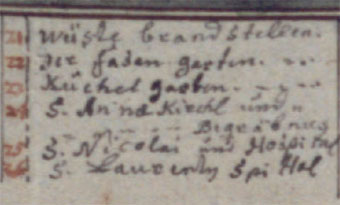 21 wüste brandstellen.
22 der faden garten. . . .
23 Küchel garten. . . . .
24 S. Anna Kirchl und
Begräbnus
25 S. Nicolai und Hospital
26 S. Laurenty Spittal